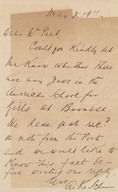 May 8, 19
Dear Mr Peet,
Could you Kindly let
Me Know whether there
are any Jews in the
American School for
Girls at
We have just rec'd
a note from the Porte
and we would like to
Know this fact be-
fore writing our reply.